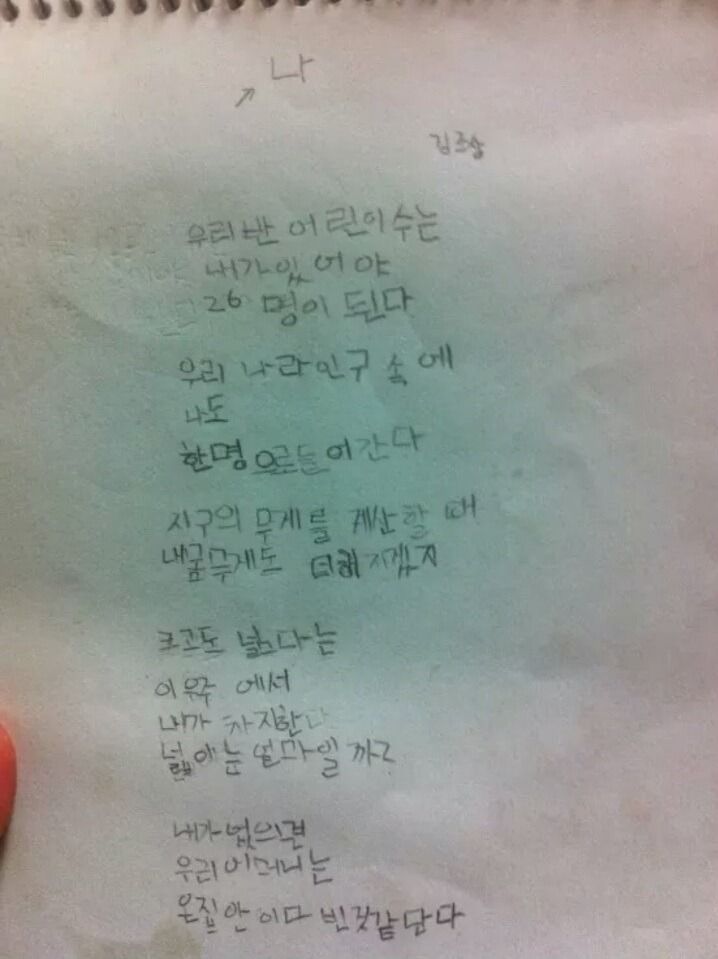 나
우리반 어린이 수는
내가 있어야
26 명이 된다
우리 나라 인구 속에
나도
한명으로 들어간다
지구의 무게를 계산할 때
내 몸무게도
크고도 넓다는
이 우주 에서
내가 차지한다
넓이는 얼마일까?
내가 없으면
우리 어머니는
온집안 이 다 빈것같단다